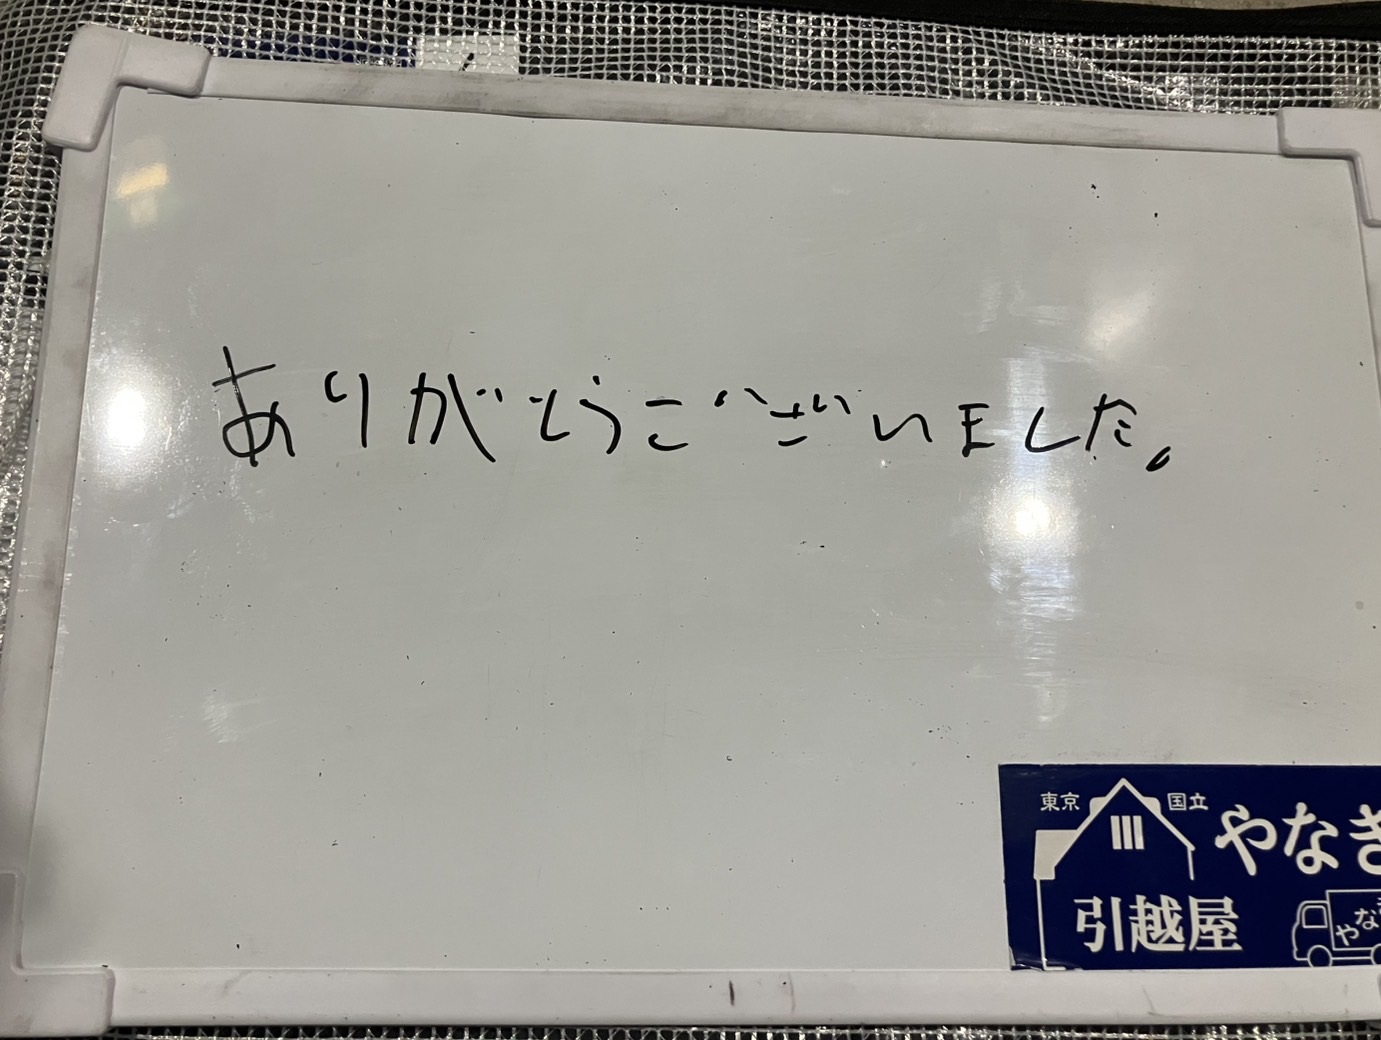 ありがとうございました。
東京 国立 やなぎ
引越屋
やな